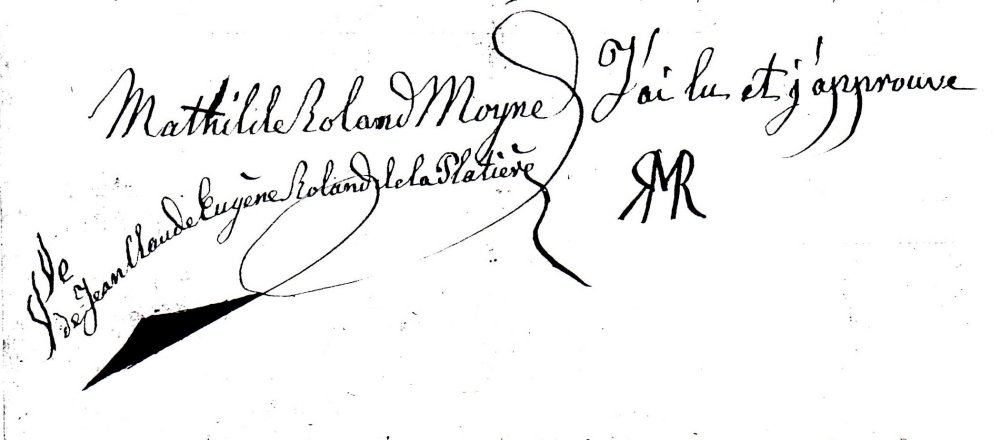 Mathilde Roland Moyne
J'ai lu et j'approuve
Ve de Jean Claude Eugène Roland de la Platière
RMR